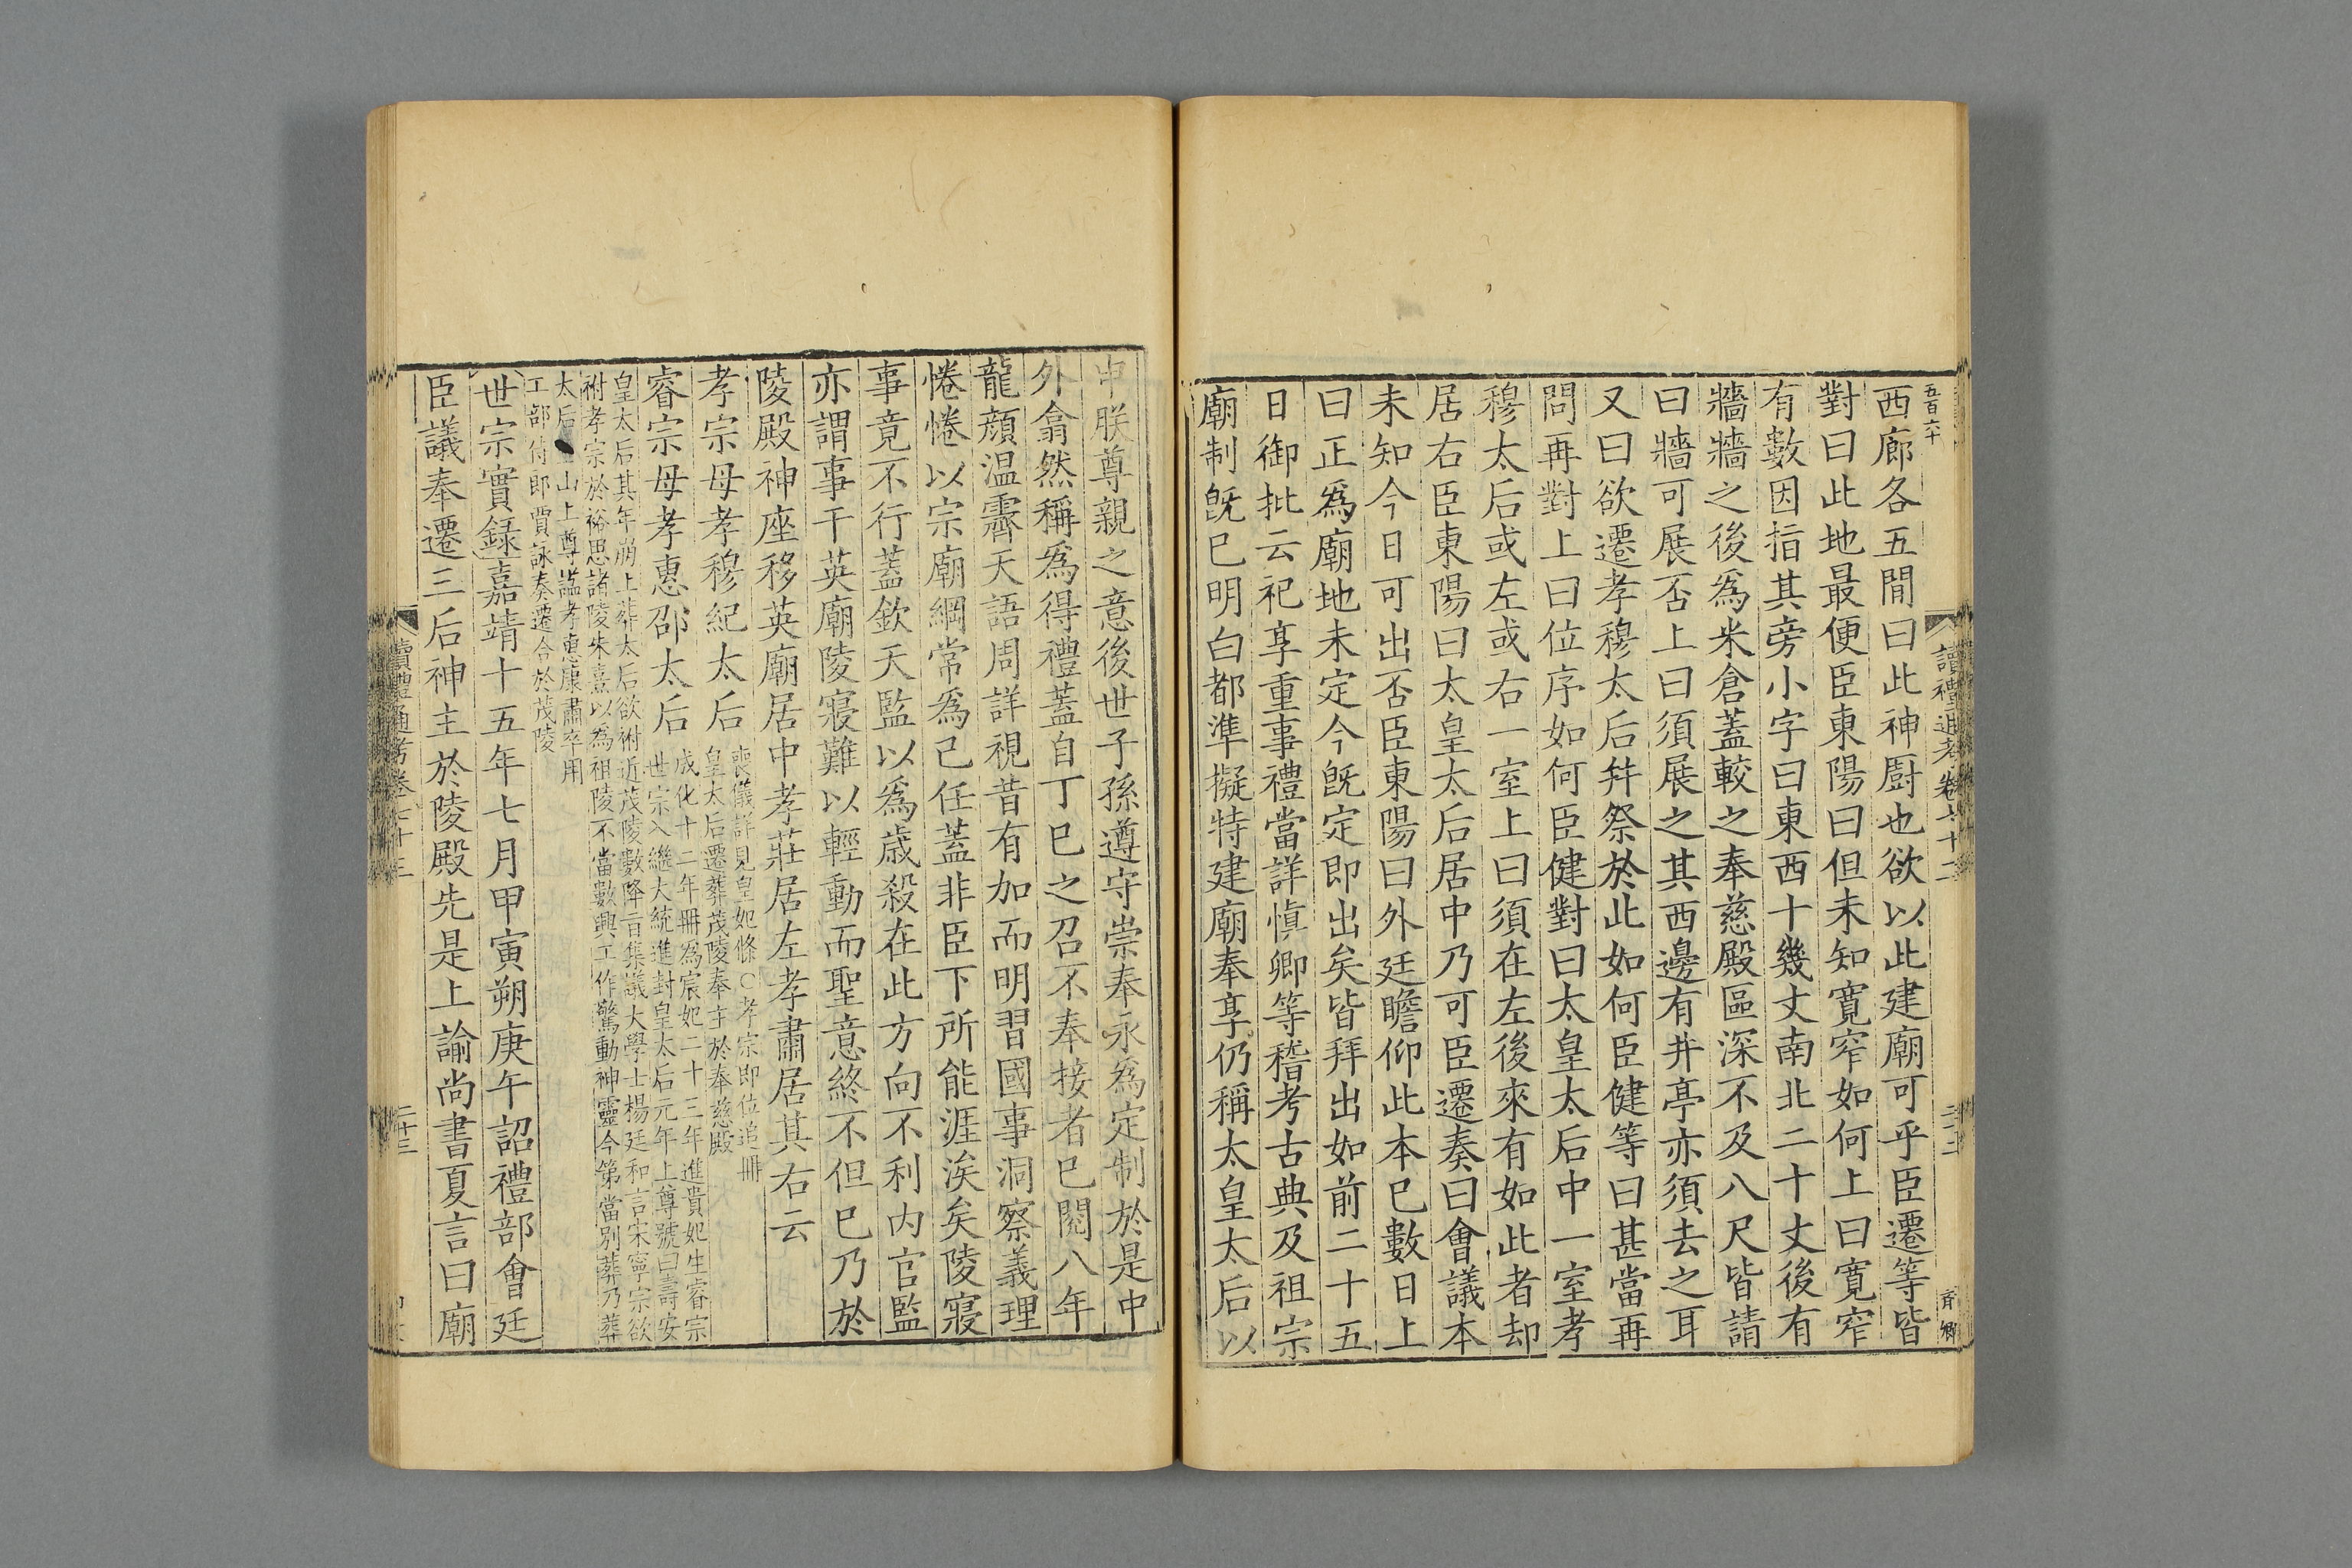 五百六十
西廊各五間曰此神厨也欲以此建廟可乎臣遷等皆
對曰此地最便臣東陽曰但未知寛窄如何上曰寛窄
有數因指其旁小字曰東西十幾丈南北二十丈後有
牆牆之後為米倉蓋較之奉慈殿區深不及八尺皆請
曰牆可展否上曰須展之其西邊有井亭亦須去之耳
又曰欲遷孝穆太后并祭於此如何臣健等曰甚當再
問再對上曰位序如何臣健對曰太皇太后中一室孝
穆太后或左或右一室上曰須在左後來有如此者却
居右臣東陽曰太皇太后居中乃可臣遷奏曰會議本
未知今日可出否臣東陽曰外廷瞻仰此本已數日上
曰正為廟地未定今旣定即出矣皆拜出如前二十五
日御批云祀享重事禮當詳慎卿等稽考古典及祖宗
廟制旣已明白都準擬特建廟奉享仍稱太皇太后以
申朕尊親之意後世子孫遵守崇奉永為定制於是中
外翕然稱為得禮蓋自丁巳之召不奉接者已閱八年
龍顔温霽天語周詳視昔有加而明習國事洞察義理
惓惓以宗廟綱常為己任蓋非臣下所能涯涘矣陵寢
事竟不行蓋欽天監以為歳殺在此方向不利内官監
亦謂事干英廟陵寢難以輕動而聖意終不但已乃於
陵殿神座移英廟居中孝莊居左孝肅居其右云
孝宗母孝穆紀太后
喪儀詳見皇妃條○孝宗即位追冊
皇太后遷葬茂陵奉主於奉慈殿
睿宗母孝惠邵太后
成化十二年冊為宸妃二十三年進貴妃生睿宗
世宗入繼大統進封皇太后元年上尊號曰壽安
皇太后其年崩上葬太后欲祔近茂陵數降旨集議大學士楊廷和言宋寧宗欲
祔孝宗於裕思諸陵朱熹以為祖陵不當數興工作驚動神靈今第當别葬乃葬
太后山上尊諡孝惠康肅卒用
工部付郎賈詠奏遷合於茂陵
世宗實録嘉靖十五年七月甲寅朔庚午詔禮部會廷
臣議奉遷三后神主於陵殿先是上諭尚書夏言曰廟
讀禮通考卷七十三
二十三